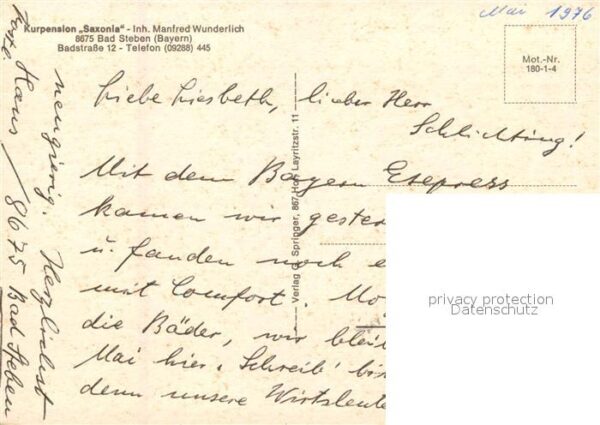 Kurpension „Saxonia" - Inh. Manfred Wunderlich
8675 Bad Steben (Bayern)
Badstraße 12 - Telefon (09288) 445
Mai 1976
Mot.-Nr.
180-1-4
Liebe Liesbeth, lieber Herr
Schlichting!
Mit dem Bayern Express
kamen wir gester
u. fanden noch e
mit Comfort. Mo
die Bäder, wir bleib
Mai hier. Schreib' bis
denn unsere Wirtsleute
neugierig. Herzlichst
Haus / 8675 Bad Steben
Verlag G. Springer, 867 Hof, Layritzstr. 11
privacy protection
Datenschutz